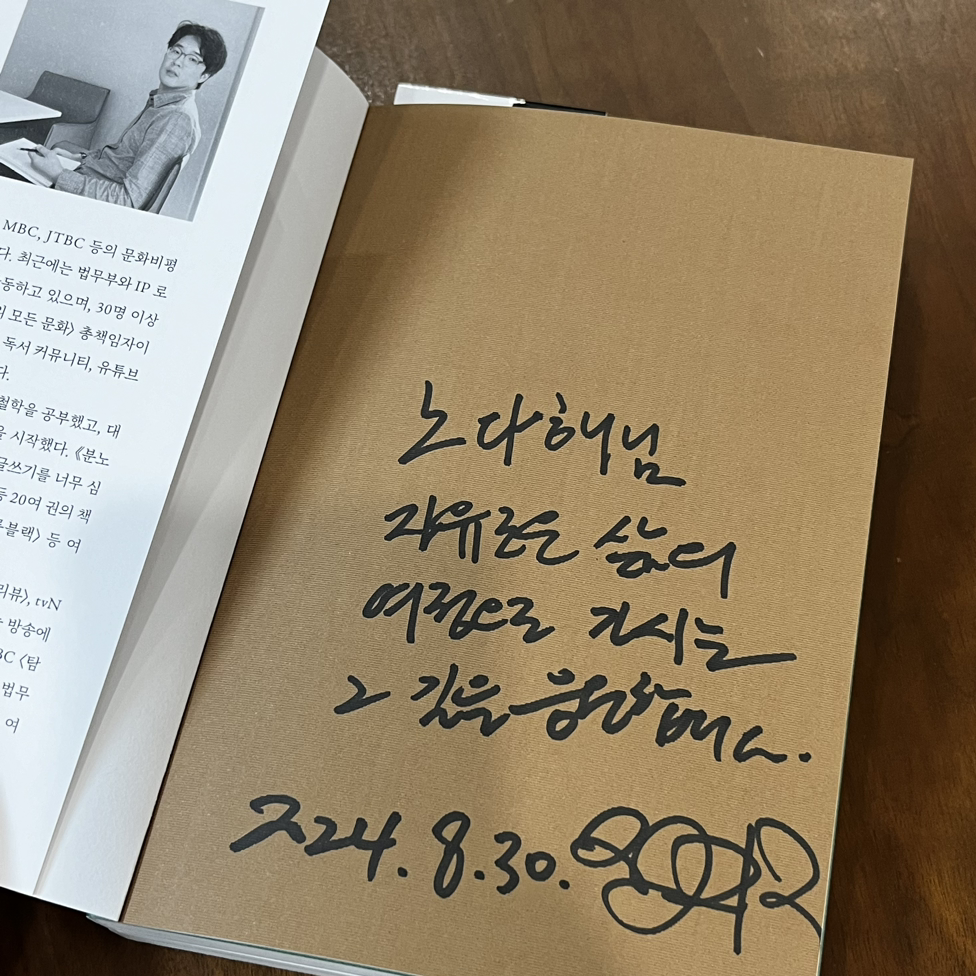 MBC, JTBC 등의 문화비평
다. 최근에는 법무부와 IP 로
동하고 있으며, 30명 이상
모든 문화〉 총책임자이
독서 커뮤니티, 유튜브
다.
철학을 공부했고, 대
을 시작했다. 《분노
글쓰기를 너무 심
등 20여 권의 책
블랙〉 등 여
리뷰〉, tvN
방송에
BC 〈탐
법무
여
노다해님
자유로운 삶의
여정으로 가시는
그 길을 응원합니다.
2024.8.30.